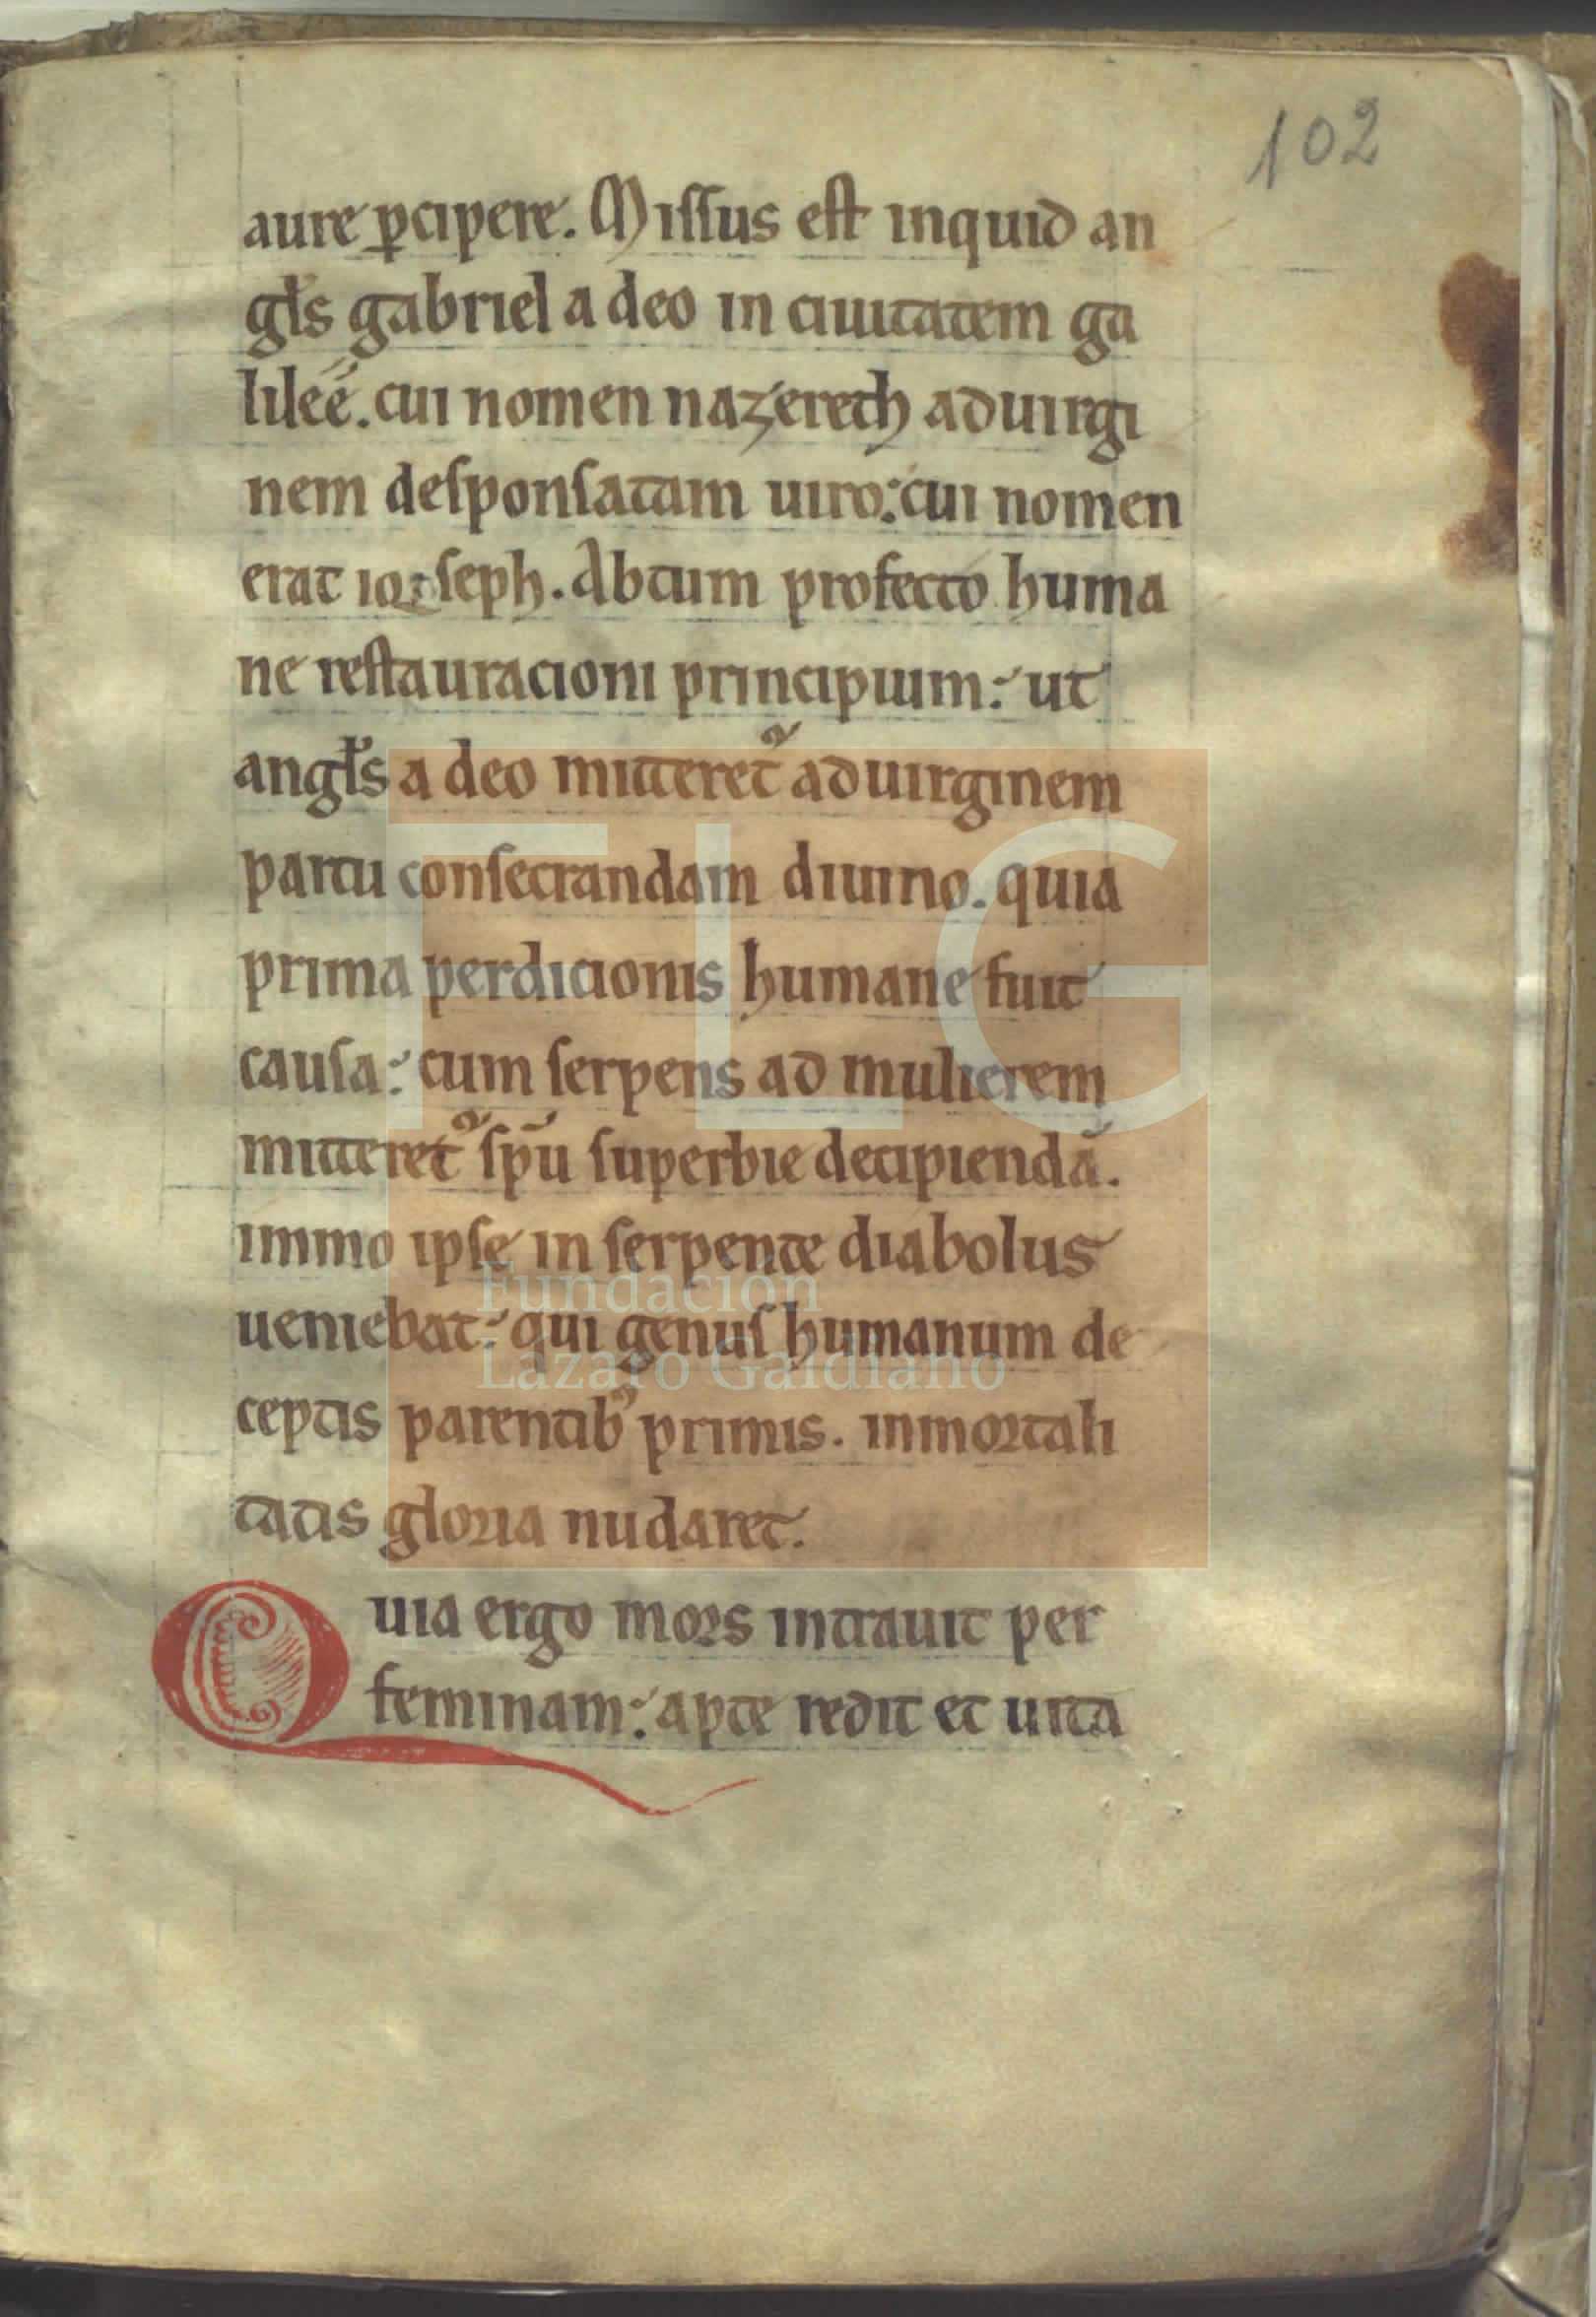 102
aure ꝑcipere. Missus est inquid an
gl̃s gabriel a deo in ciuitatem ga
lileé. cui nomen nazereth ad uirgi
nem desponsatam uiro: cui nomen
erat ioseph. Abtum profecto huma
ne restauracioni principium: ut
angl̃s a deo mitteret᷑ ad uirginem
partu consecrandam diuino. quia
prima perdicionis humane fuit
causa: cum serpens ad mulierem
mitteret᷑ sp̄u superbie decipiendā.
immo ipse in serpente diabolus
ueniebat: qui genus humanum de
ceptis parentibꝰ primis. inmortali
tatis gloria nudaret.
Quia ergo mors intrauit per
feminam: apte redit et uita
FLG
Fundación
Lázaro Galdiano